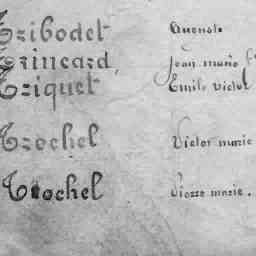 Tribodet Auguste
Trincard, Jean marie
Triquet Emile victor
Trochel Victor marie
Trochel Pierre marie.